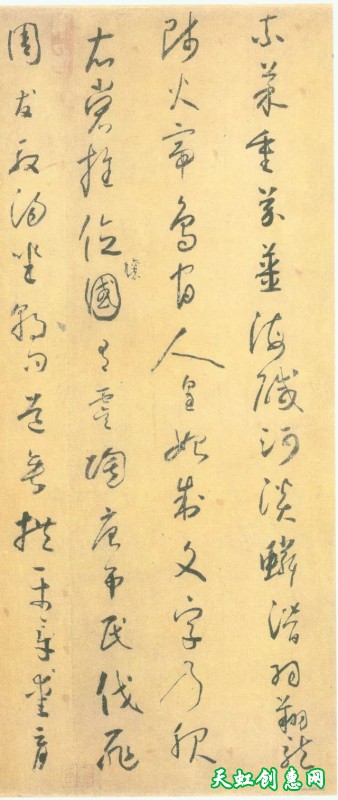 柰菜重芥薑海鹹河淡鱗潛羽翔龍
師火帝鳥官人皇始制文字乃服
衣裳推位讓國有虞陶唐弔民伐罪
周發殷湯坐朝問道垂拱平章愛育
天虹创惠网